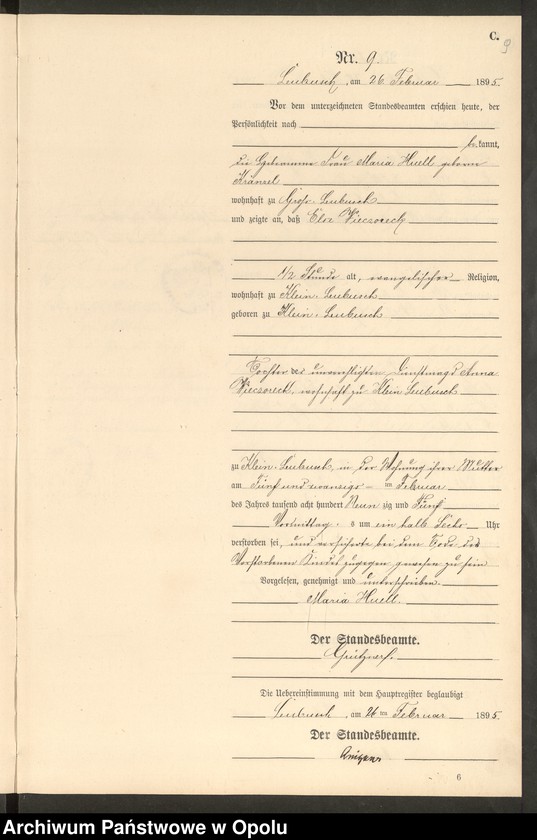 C.
9
Nr. 9
Leubusch, am 26 Februar 1895.
Vor dem unterzeichneten Standesbeamten erschien heute, der
Persönlichkeit nach
bekannt,
die Hebamme Frau Maria Huell geborene
wohnhaft zu Groß Leubusch
und zeigte an, daß Else Wieczoreck
1/2 Stunde alt, evangelischer Religion,
wohnhaft zu Klein-Leubusch
geboren zu Klein-Leubusch
Tochter der unverehligten Dienstmagd Anna
Wieczoreck, wohnhaft zu Klein Leubusch
zu Klein-Leubusch, in der Wohnung ihrer Mutter
am Fünf und zwanzig-ten Februar
des Jahres tausend acht hundert Neun zig und Fünf
Vormittags um ein halb Sechs Uhr
verstorben sei, und versicherte bei dem Tode des
Verstorbenen Kindes zugegen gewesen zu sein
Vorgelesen, genehmigt und unterschrieben.
Maria Huell.
Der Standesbeamte.
Die Uebereinstimmung mit dem Hauptregister beglaubigt
Leubusch, am 26ten Februar 1895.
Der Standesbeamte.
6
Archiwum Państwowe w Opolu